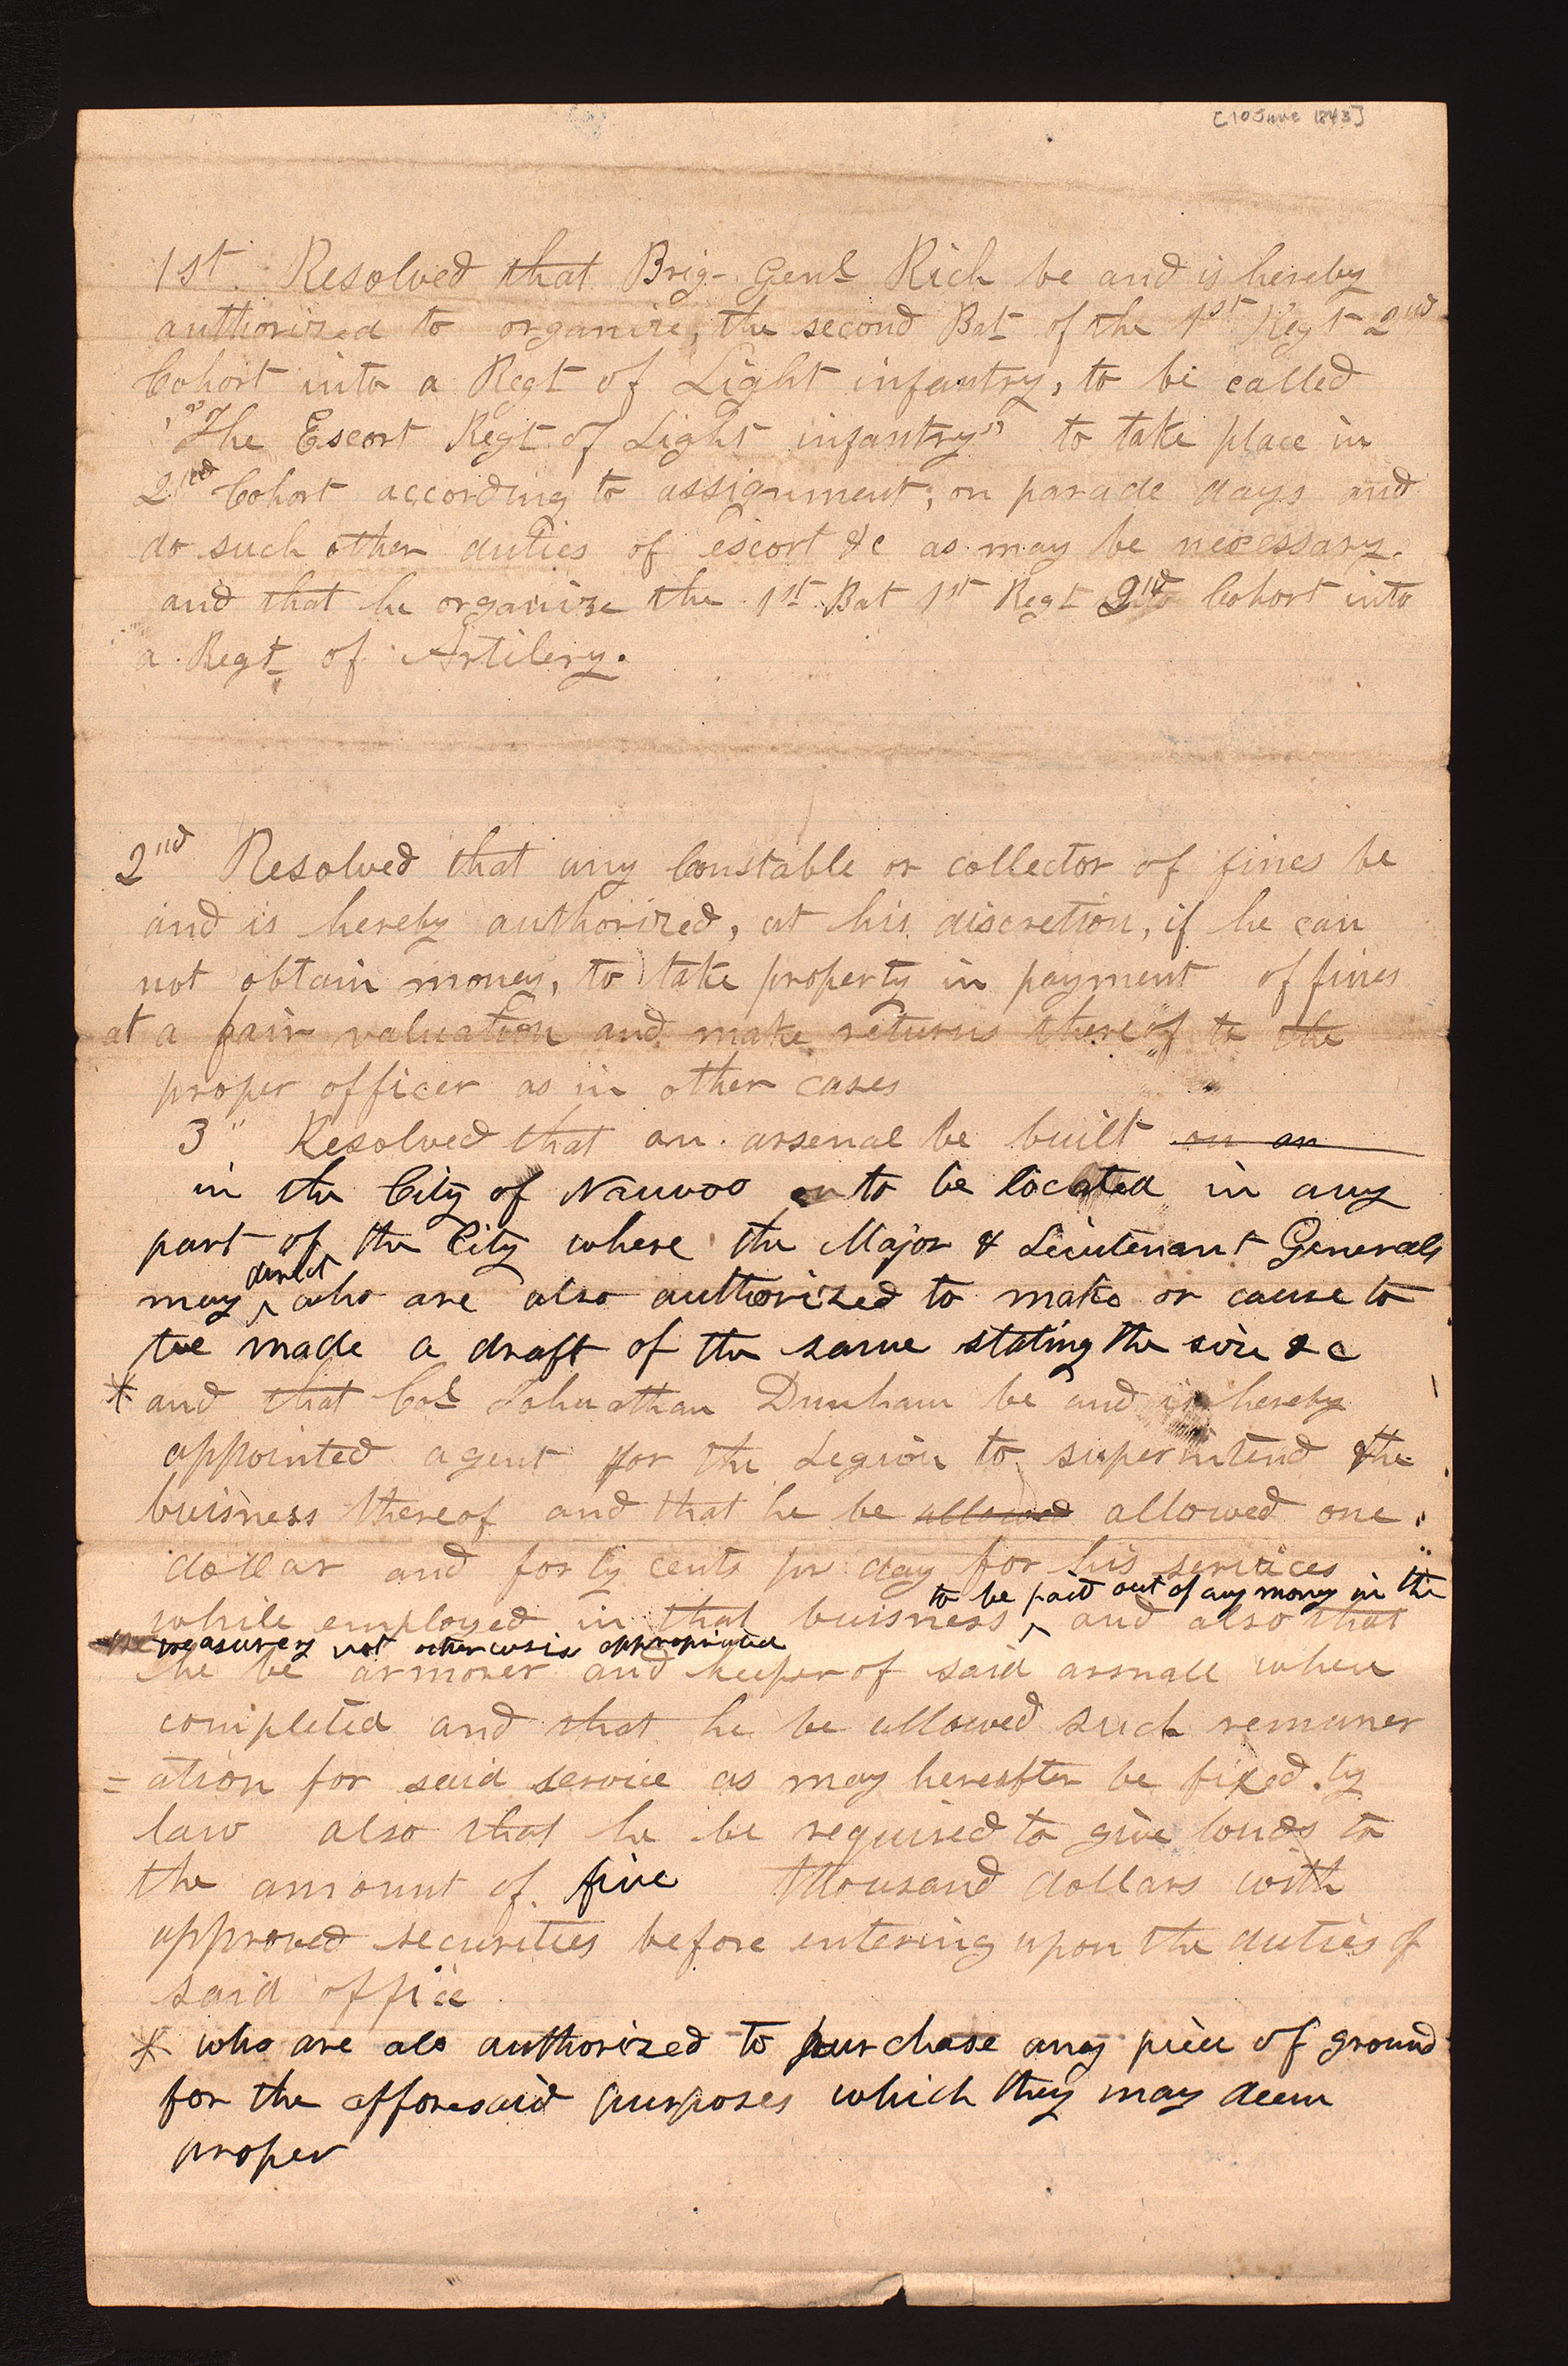 [10 June 1843]
1st. Resolved that Brig- Genl Rich be and is hereby
authorized to organize, the second Bat of the 1st Regt 2nd
Cohort into a Regt of Light infantry, to be called
"The Escort Regt of Light infantry" to take place in
2nd Cohort according to assignment; on parade days and
do such other duties of escort &c as may be necessary.
and that he organize the 1st Bat 1st Regt 2nd Cohort into
a Regt of Artilery.
2nd Resolved that any Constable or collector of fines be
and is hereby authorized, at his discretion, if he can
not obtain money, to take property in payment of fines
at a fair valuation and make returns thereof to the
proper officer as in other cases
3" Resolved that an arsenal be built on an
in the City of Nauvoo to be located in any
part of the City where the Major & Lieutenant Generals
direct
may ^ who are also authorized to make or cause to
be made a draft of the same stating the size &c
* and that Col Johnathan Dunham be and is hereby
appointed agent for the Legion to superintend the
buisness thereof and that he be allowed allowed one
dollar and forty cents pr day for his services
to be paid out of any money in the
while employed in that buisness ^ and also that
treasurery not otherwise appropriated
he be armorer and keeper of said arsnall when
completed and that he be allowed such remuner
=ation for said service as may hereafter be fixed by
law also that he be required to give bonds to
the amount of five thousand dollars with
approved securities before entering upon the duties of
said office
* who are als authorized to purchase any piece of ground
for the afforesaid purposes which they may deem
proper